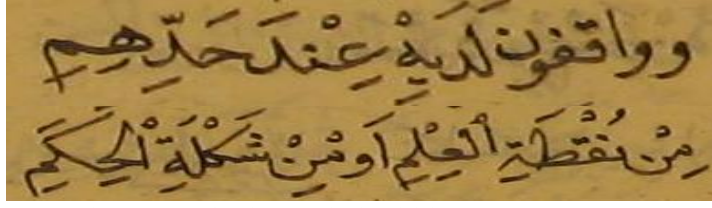 وواقفون لديهْ عِنْدَ حَدِّهِمِ
مِنْ نُقْطَةِ الْعِلْمِ اَومِنْ شَكْلَةِ الْحِكَمِ